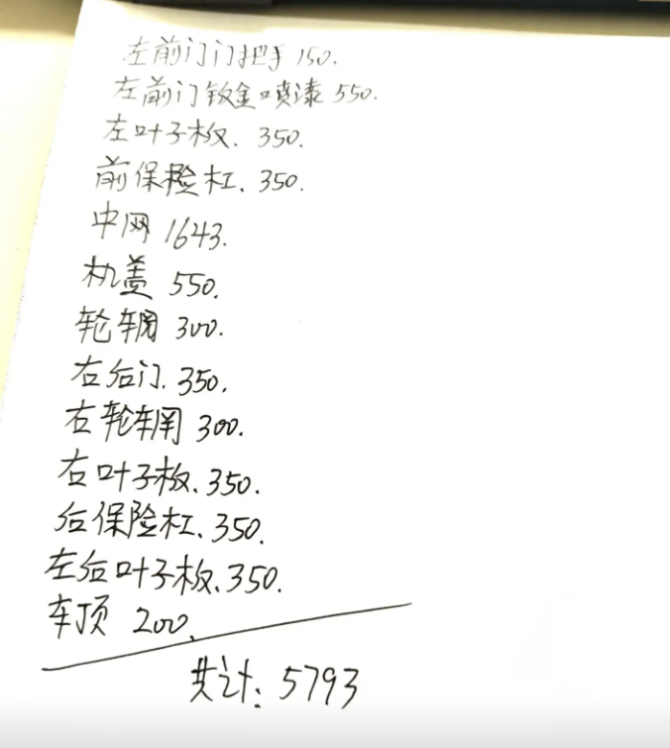 左前门门把手 150.
左前门钣金喷漆 550.
左叶子板. 350.
前保险杠. 350.
中网 1643.
机盖 550.
轮辋 300.
右后门. 350.
右轮辋 300.
右叶子板. 350.
后保险杠. 350.
左后叶子板. 350.
车顶 200.
共计: 5793